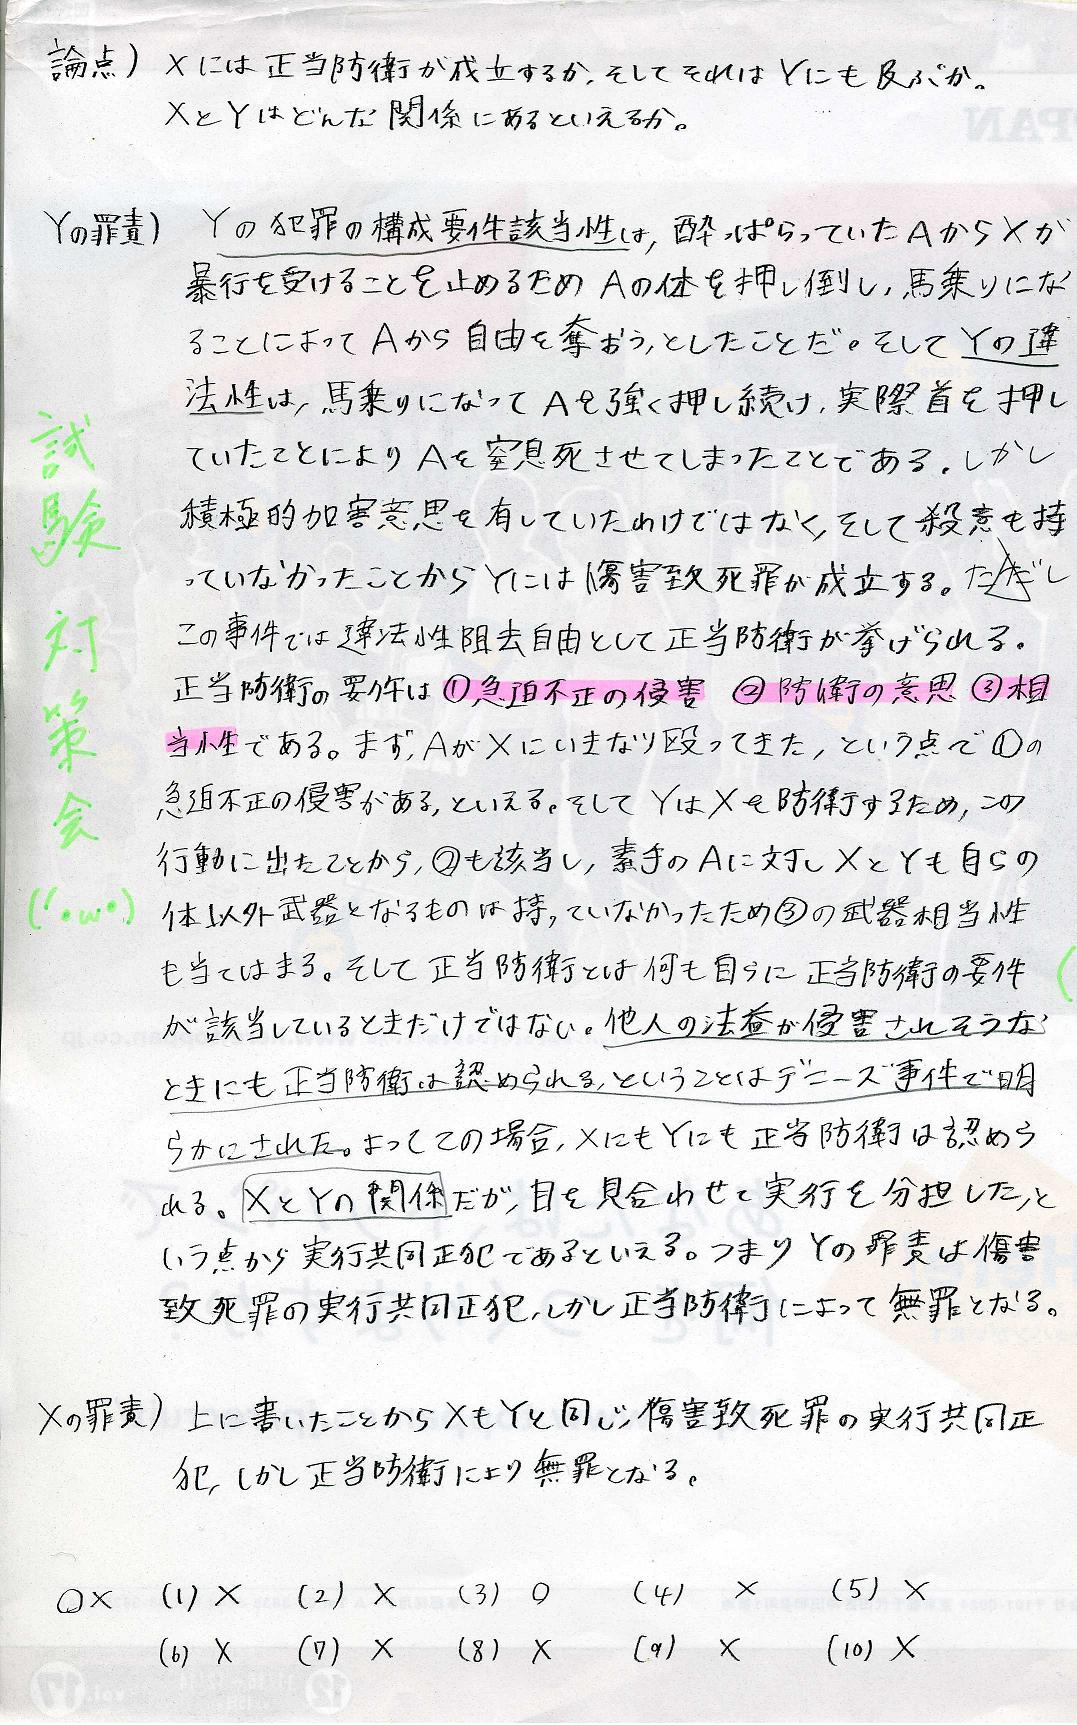 論点) Xには正当防衛が成立するか、そしてそれはYにも及ぶか。
XとYはどんな関係にあるといえるか。
Yの罪責) Yの犯罪の構成要件該当性は、酔っぱらっていたAからXが
暴行を受けることを止めるためAの体を押し倒し、馬乗りにな
ることによってAから自由を奪おう、としたことだ。そしてYの違
法性は、馬乗りになってAを強く押し続け、実際首を押し
ていたことによりAを窒息死させてしまったことである。しかし
積極的加害意思を有していたわけではなく、そして殺意も持
っていなかったことからYには傷害致死罪が成立する。ただし
この事件では違法性阻去自由として正当防衛が挙げられる。
正当防衛の要件は①急迫不正の侵害 ②防衛の意思 ③相
当性である。まず、AがXにいきなり殴ってきた、という点で①の
急迫不正の侵害がある、といえる。そしてYはXを防衛するため、この
行動に出たことから、②も該当し、素手のAに対しXとYも自らの
体以外武器となるものは持っていなかったため③の武器相当性
も当てはまる。そして正当防衛とは何も自らに正当防衛の要件
が該当しているときだけではない。他人の法益が侵害されそうな
ときにも正当防衛は認められる、ということはデニーズ事件で明
らかにされた。よってこの場合、XにもYにも正当防衛は認めら
れる。XとYの関係だが、目を見合わせて実行を分担した、と
いう点から実行共同正犯であるといえる。つまりYの罪責は傷害
致死罪の実行共同正犯、しかし正当防衛によって無罪となる。
Xの罪責) 上に書いたことからXもYと同じ傷害致死罪の実行共同正
犯、しかし正当防衛により無罪となる。
○× (1) × (2) × (3) ○ (4) × (5) ×
(6) × (7) × (8) × (9) × (10) ×
試験対策会
(´・ω・)